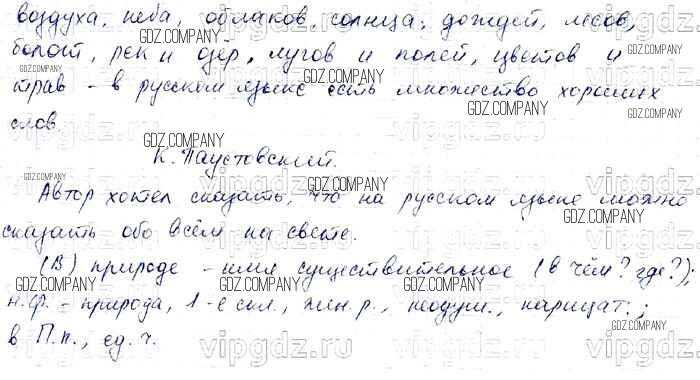 воздуха, неба, облаков, солнца, дождей, лесов,
болот, рек и озёр, лугов и полей, цветов и
трав - в русском языке есть множество хороших
слов.
К. Паустовский.
Автор хотел сказать, что на русском языке можно
сказать обо всём на свете.
(В) природе - имя существительное (в чём? где?);
н.ф. - природа, 1-е скл., жен. р., неодуш., нарицат.;
в П.п., ед. ч.